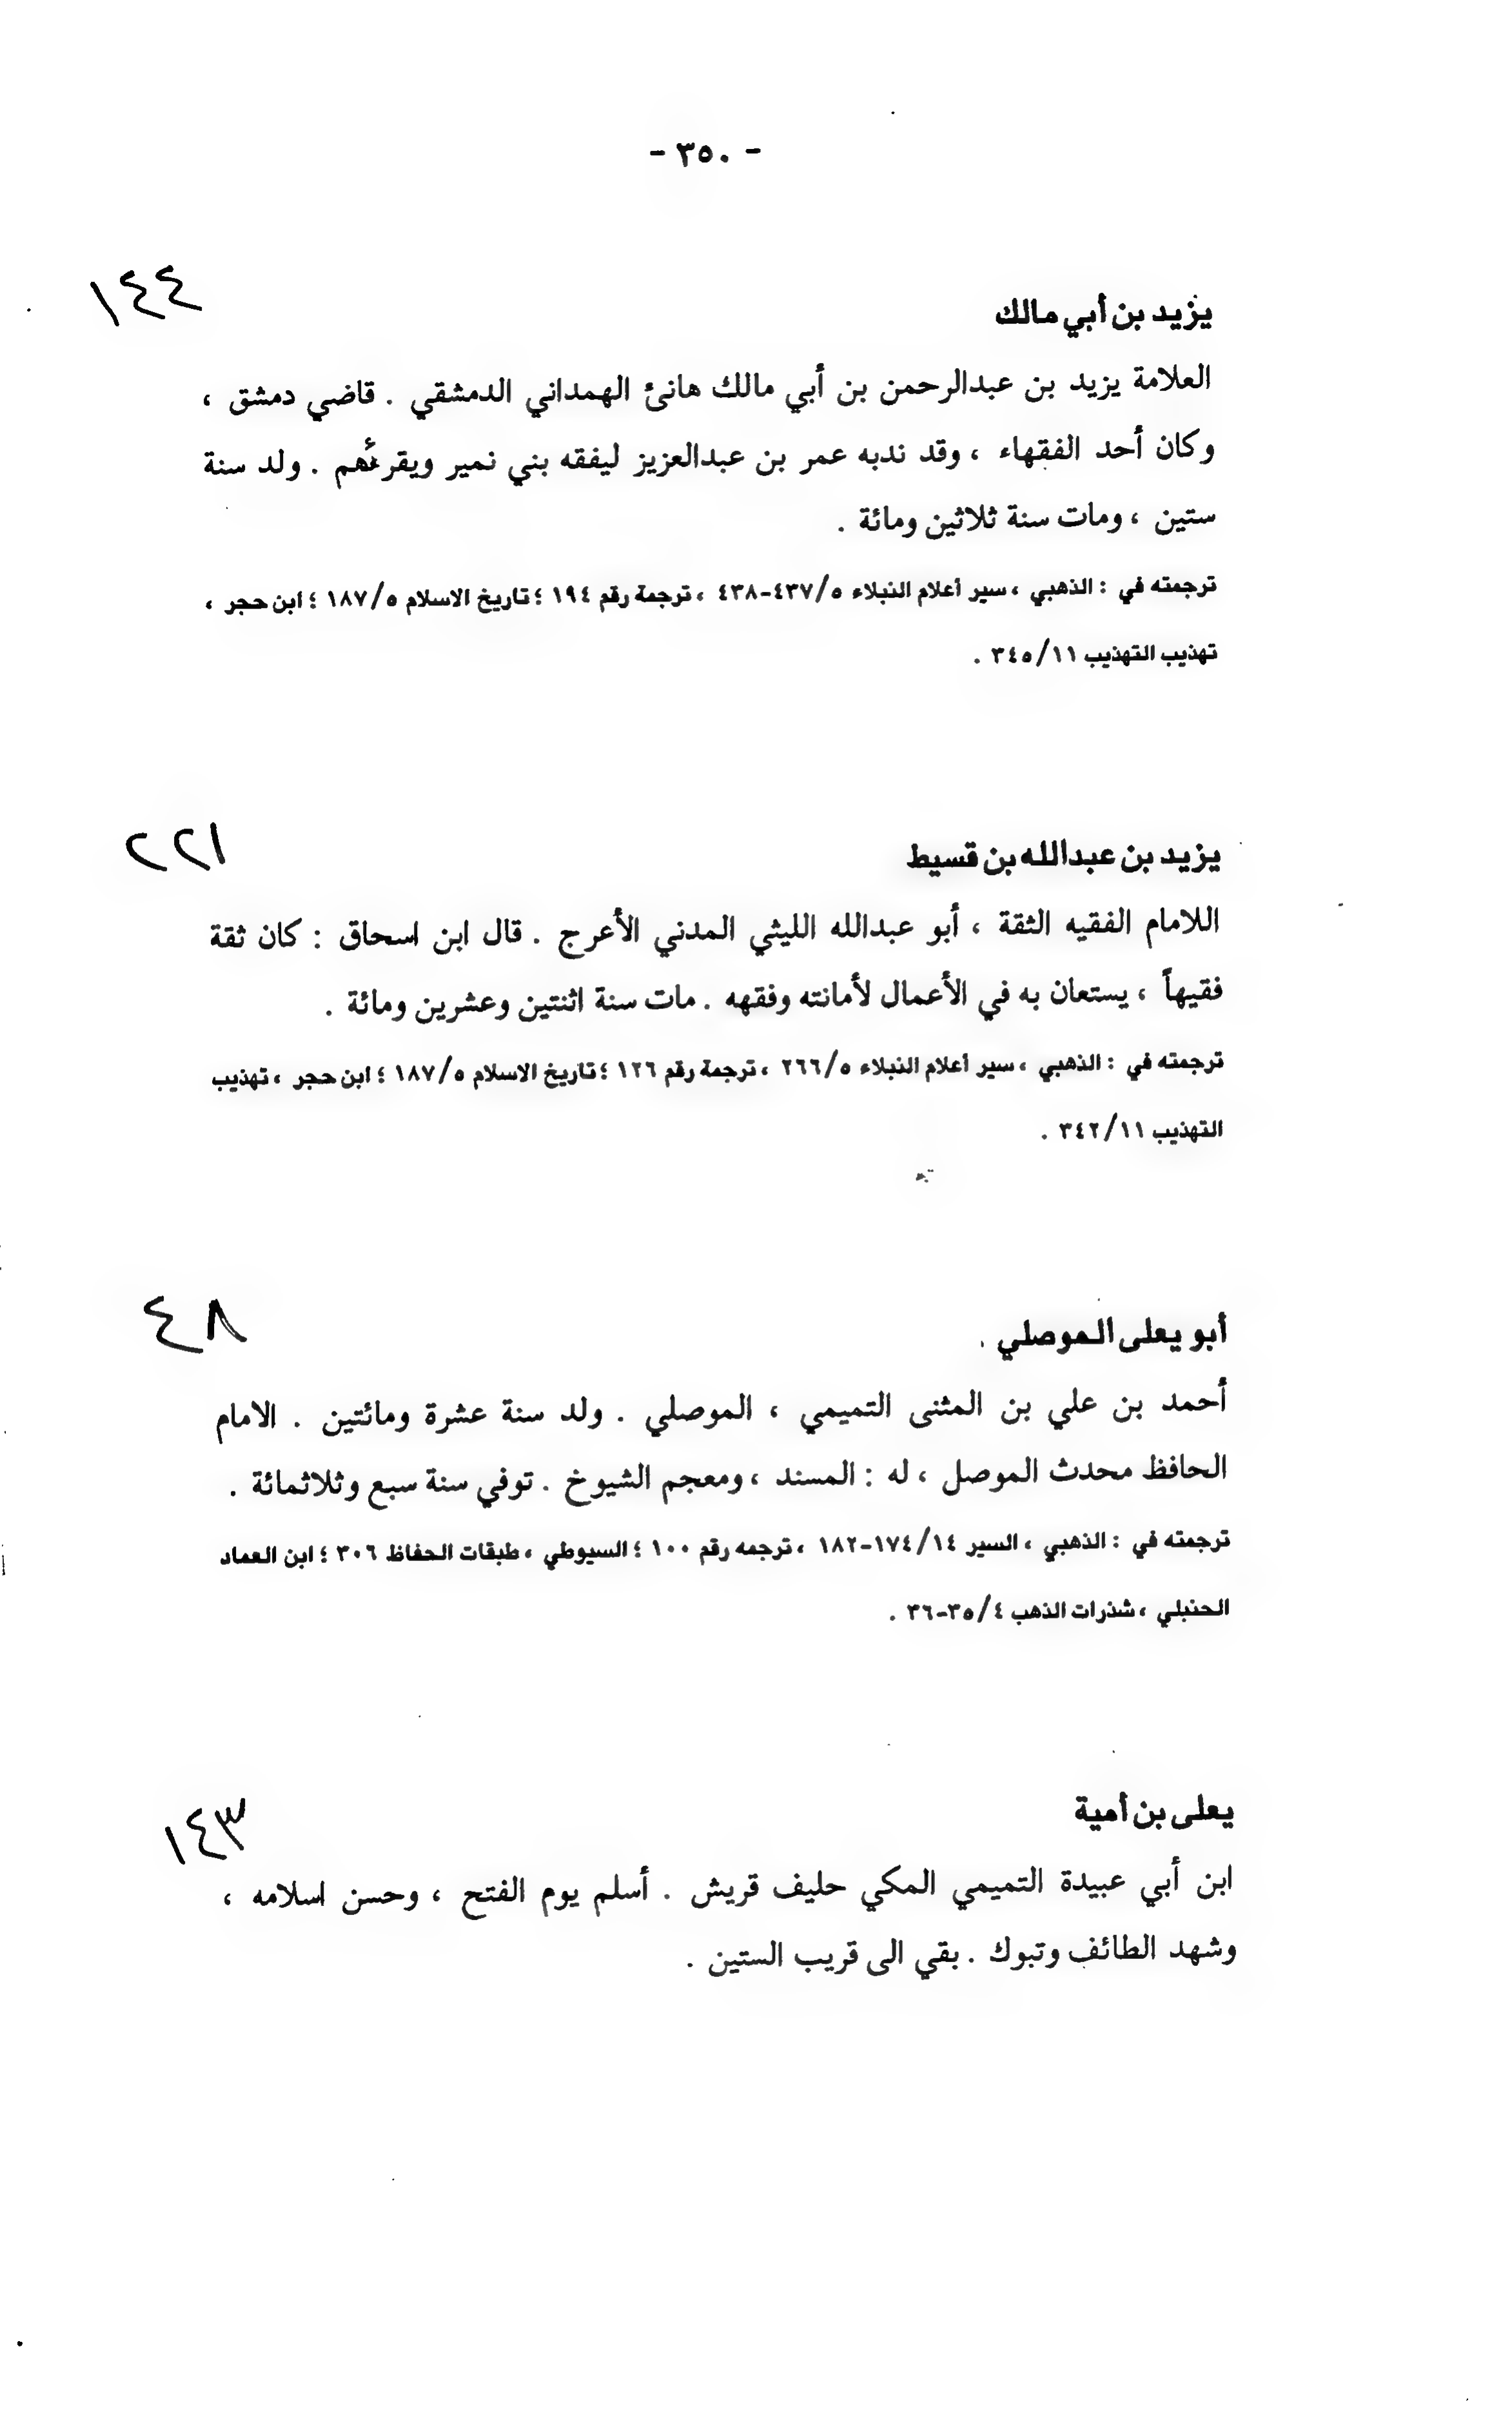 - ٣٥٠ -
يزيد بن أبي مالك ١٤٤
العلامة يزيد بن عبدالرحمن بن أبي مالك هانئ الهمداني الدمشقي . قاضي دمشق ،
وكان أحد الفقهاء ، وقد ندبه عمر بن عبدالعزيز ليفقه بني نمير ويقرئهم . ولد سنة
ستين ، ومات سنة ثلاثين ومائة .
ترجمته في : الذهبي ، سير أعلام النبلاء ٥/٤٣٧-٤٣٨ ، ترجمة رقم ١٩٤ ؛ تاريخ الاسلام ٥/١٨٧ ؛ ابن حجر ،
تهذيب التهذيب ١١/٣٤٥ .
يزيد بن عبدالله بن قسيط ٢٢١
اللامام الفقيه الثقة ، أبو عبدالله الليثي المدني الأعرج . قال ابن اسحاق : كان ثقة
فقيهاً ، يستعان به في الأعمال لأمانته وفقهه . مات سنة اثنتين وعشرين ومائة .
ترجمته في : الذهبي ، سير أعلام النبلاء ٥/٢٦٦ ، ترجمة رقم ١٢٦ ؛ تاريخ الاسلام ٥/١٨٧ ؛ ابن حجر ، تهذيب
التهذيب ١١/٣٤٢ .
أبو يعلى الموصلي . ٤٨
أحمد بن علي بن المثنى التميمي ، الموصلي . ولد سنة عشرة ومائتين . الامام
الحافظ محدث الموصل ، له : المسند ، ومعجم الشيوخ . توفي سنة سبع وثلاثمائة .
ترجمته في : الذهبي ، السير ١٤/١٧٤-١٨٢ ، ترجمه رقم ١٠٠ ؛ السيوطي ، طبقات الحفاظ ٣٠٦ ؛ ابن العماد
الحنبلي ، شذرات الذهب ٤/٣٥-٣٦ .
يعلى بن أمية ١٤٣
ابن أبي عبيدة التميمي المكي حليف قريش . أسلم يوم الفتح ، وحسن اسلامه ،
وشهد الطائف وتبوك . بقي الى قريب الستين .